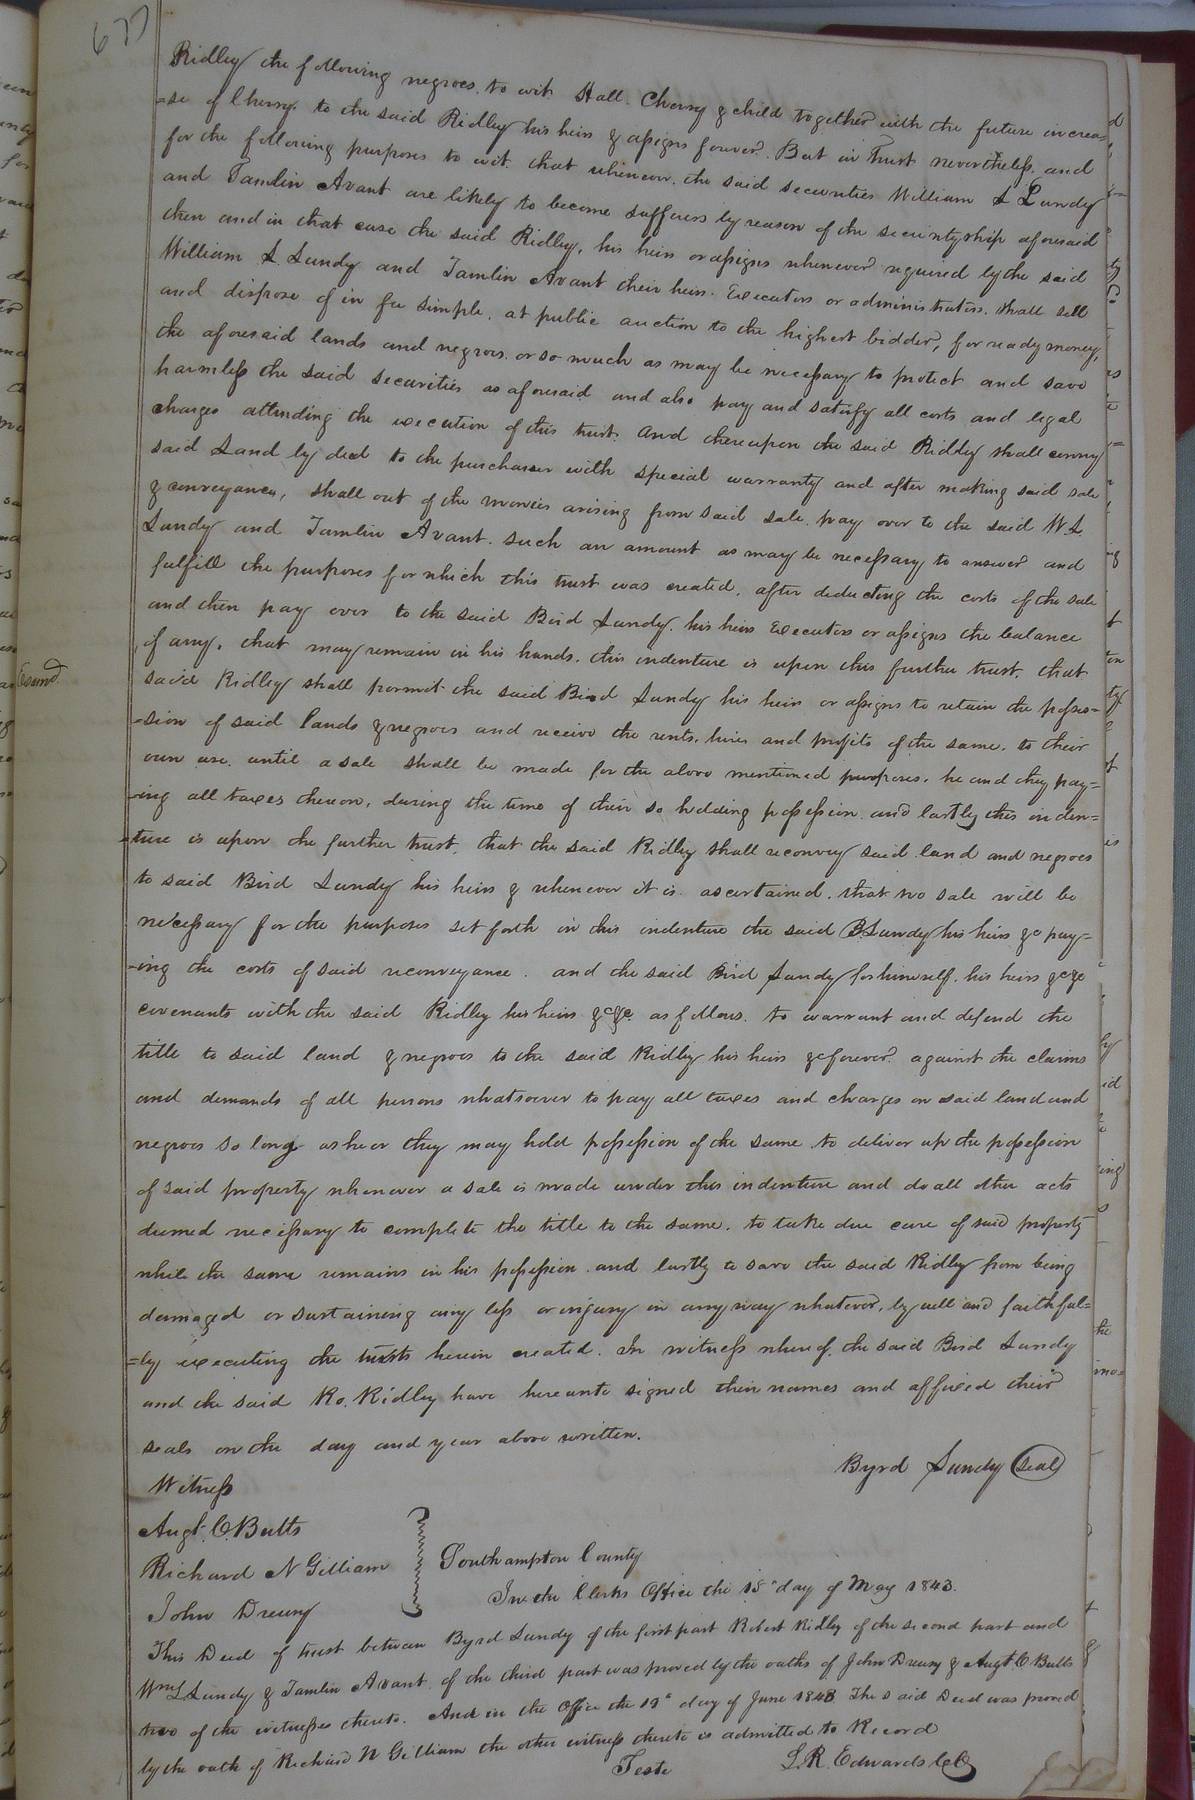 677
Ridley the following negroes, to wit. Hall. Cherry & child together with the future increa=
=se of Cherry. to the said Ridley his heirs & assigns forever. But in Trust nevertheless. and
for the following purposes to wit that whenever. the said securities William S Lundy
and Tamlin Avant are likely to become sufferers by reason of the securityship aforesaid
then and in that case the said Ridley, his heirs or assigns whenever required by the said
William S Lundy and Tamlin Avant their heirs. Executors or administrators. shall sell
and dispose of in fee simple, at public auction to the highest bidder, for ready money,
the aforesaid lands and negroes. or so much as may be necessary to protect and save
harmless the said securities as aforesaid and also pay and satisfy all costs and legal
charges attending the execution of this trust. And thereupon the said Ridley shall convey
said Land by deed to the purchaser with special warranty and after making said sale
& conveyance, shall out of the monies arising from said sale. pay over to the said W. S.
Lundy and Tamlin Avant. such an amount as may be necessary to answer and
fulfill the purposes for which this trust was created, after deducting the costs of the sale
and then pay over to the said Bird Lundy. his heirs Executors or assigns the balance
if any, that may remain in his hands. this indenture is upon this further trust, that
said Ridley shall permit the said Bird Lundy his heirs or assigns to retain the posses=
=sion of said lands & negroes and receive the rents, hires and profits of the same. to their
own use. until a sale shall be made for the above mentioned purposes. he and they pay=
=ing all taxes thereon, during the time of their so holding possession and lastly this inden=
=ture is upon the further trust, that the said Ridley shall reconvey said land and negroes
to said Bird Lundy his heirs & whenever it is ascertained. that no sale will be
necessary for the purposes set forth in this indenture the said B Lundy his heirs &c pay=
=ing the costs of said reconveyance. and the said Bird Lundy for himself. his heirs &c &c
covenants with the said Ridley his heirs &c &c as follows. to warrant and defend the
title to said land & negroes to the said Ridley his heirs &c forever. against the claims
and demands of all persons whatsoever to pay all taxes and charges on said land and
negroes so long as he or they may hold possession of the same to deliver up the possession
of said property whenever a sale is made under this indenture and do all other acts
deemed necessary to complete the title to the same. to take due care of said property
while the same remains in his possession. and lastly to save the said Ridley from being
damaged or sustaining any loss or injury in any way whatever, by well and faithful=
=ly executing the trusts herein created. In witness whereof. the said Bird Lundy
and the said Ro. Ridley have hereunto signed their names and affixed their
seals on the day and year above written.
Byrd Lundy (seal)
Witness
Augt. C. Butts
Richard N Gilliam
John Drewry
Southampton County
In the Clerks Office the 15" day of May 1843.
This Deed of trust between Byrd Lundy of the first part Robert Ridley of the second part and
Wm S Lundy & Tamlin Avant of the third part was proved by the oaths of John Drewry & Augt C Butts
two of the witnesses thereto. And in the Office the 19" day of June 1843 The said Deed was proved
by the oath of Richard N Gilliam the other witness thereto is admitted to Record
Teste L. R. Edwards CC